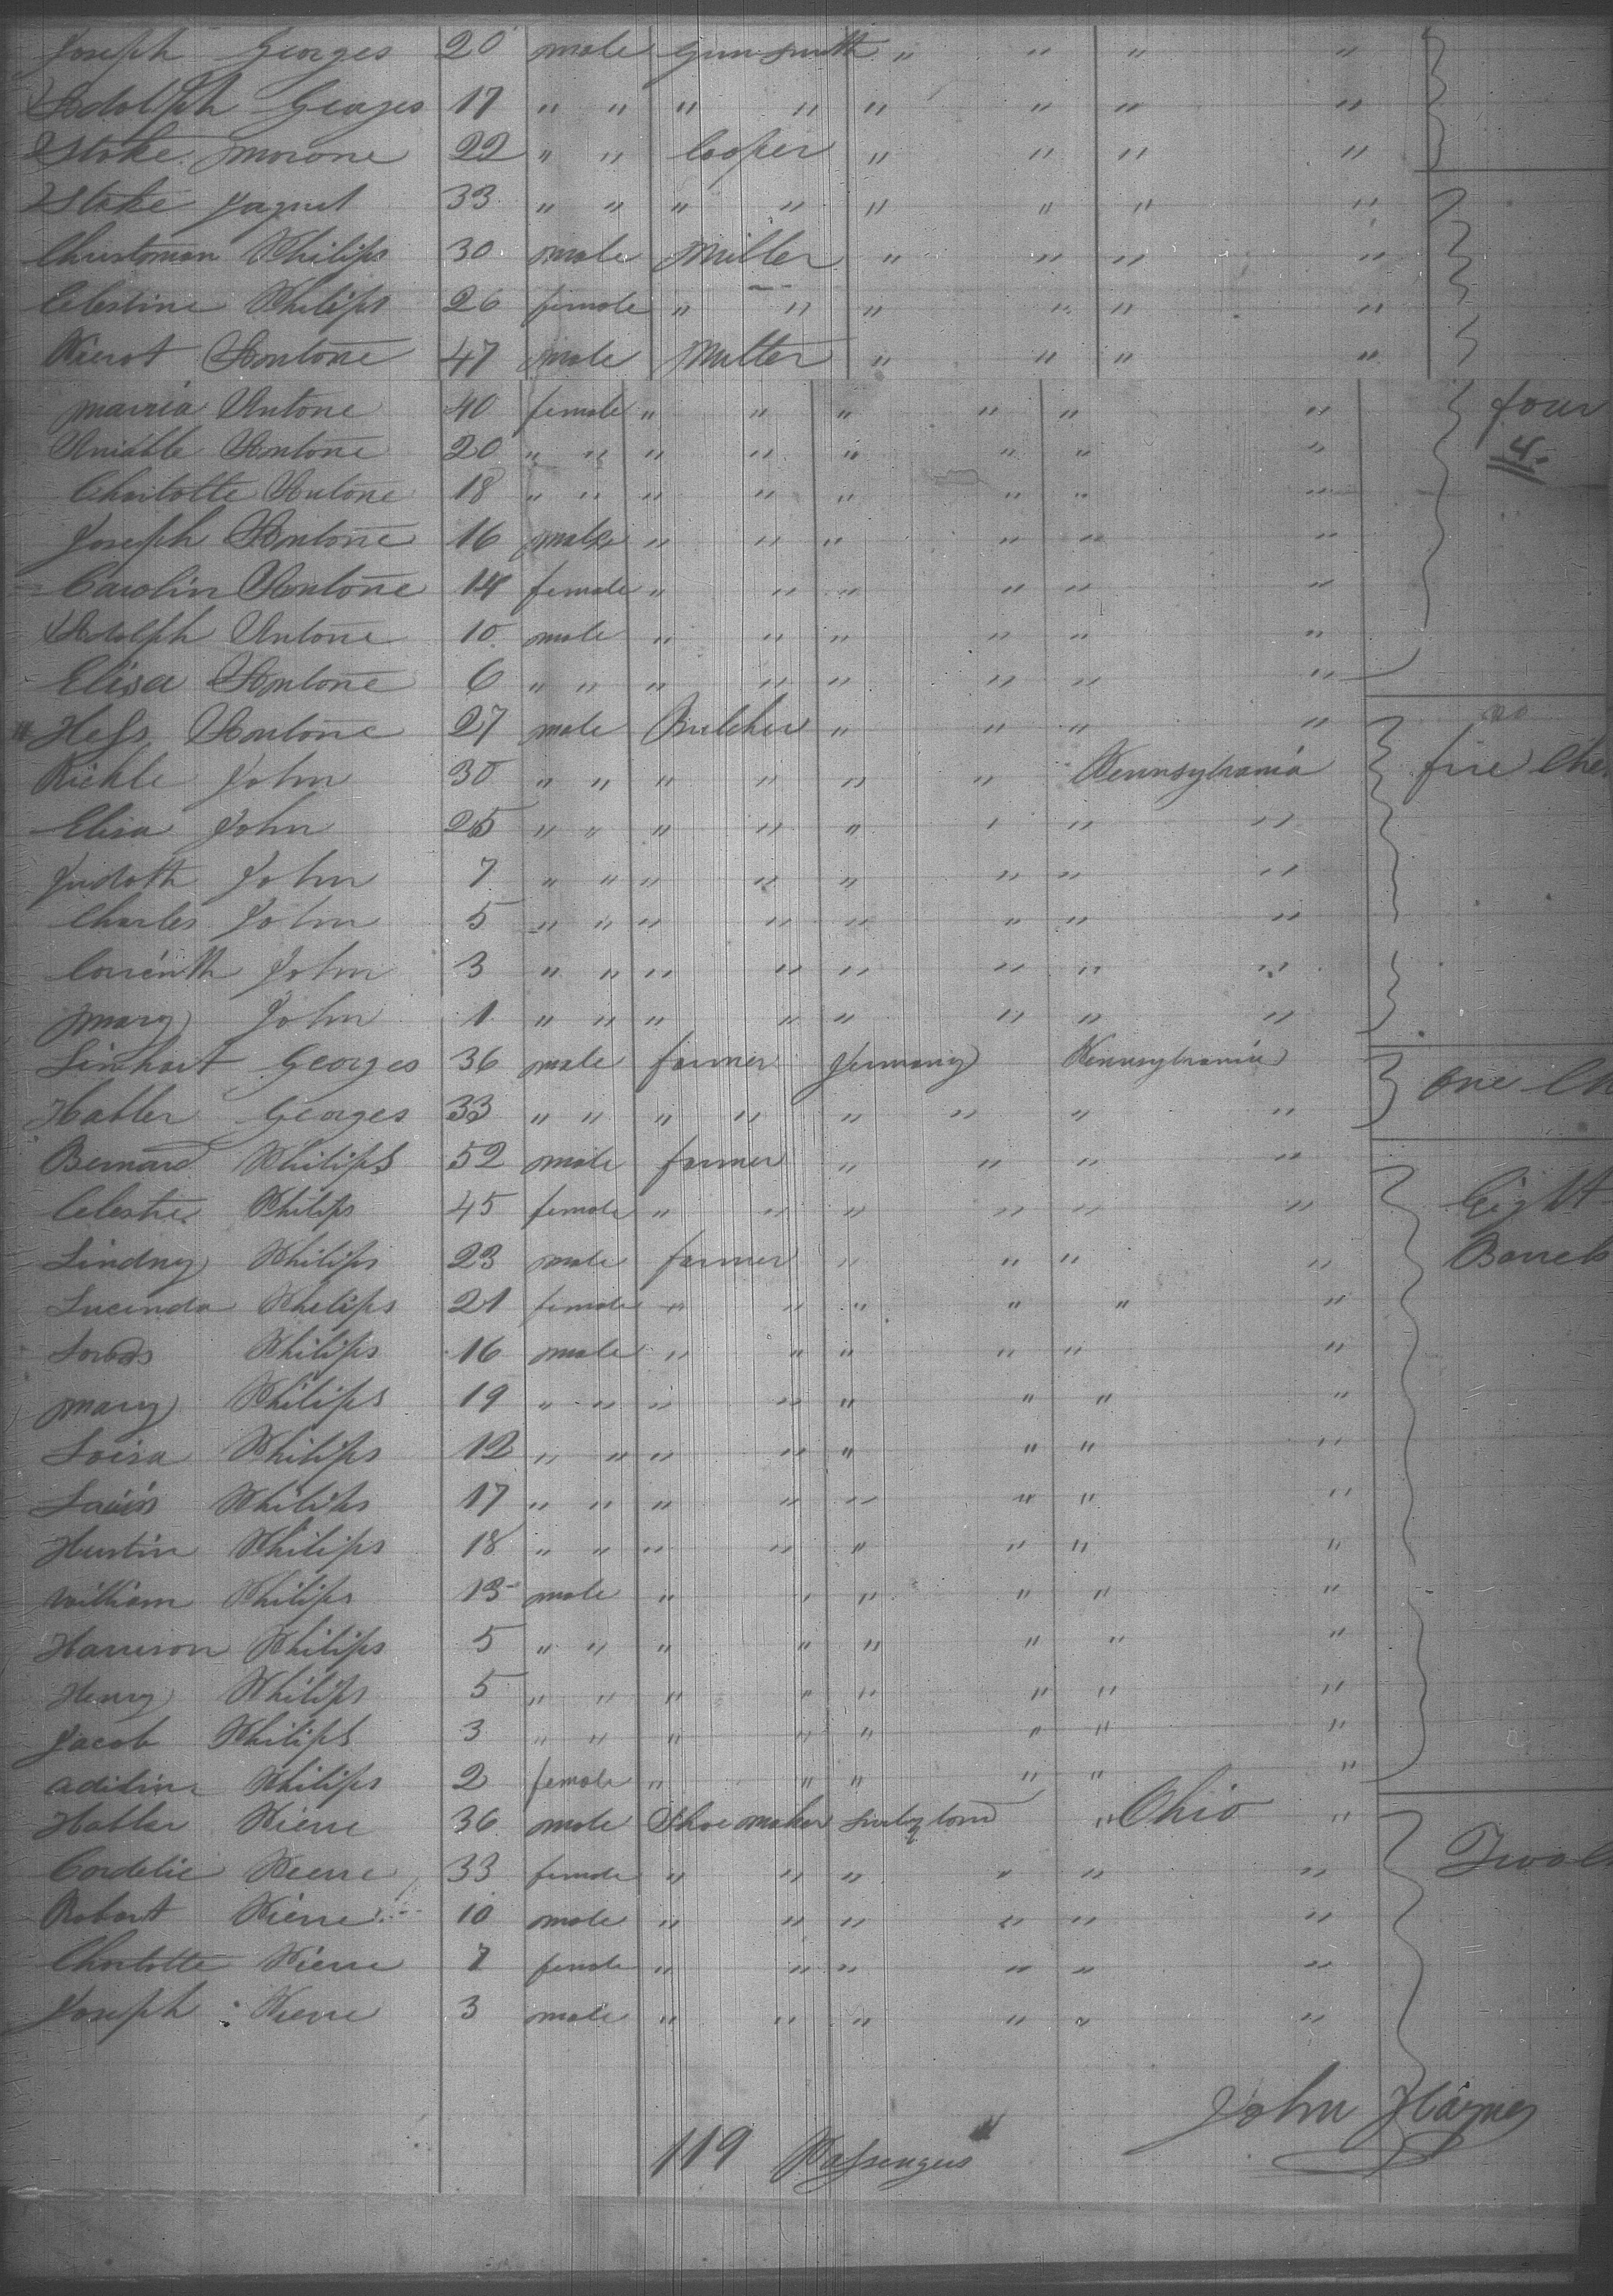 Joseph Georges 20 male Gun smith " " " "
Adolph Georges 17 " " " " " " " "
Stoke Morone 22 " " Cooper " " " "
Stoke Jaquet 33 " " " " " " " "
Christoman Philips 30 male Miller " " " "
Celestine Philips 26 female " " " " " "
Pierot Antone 47 male Miller " " " "
Marria Antone 40 female " " " " " " four
Amiable Antone 20 " " " " " " " " 4.
Charlotte Antone 18 " " " " " " " "
Joseph Antone 16 male " " " " " "
Carolin Antone 14 female " " " " " "
Adolph Antone 10 male " " " " " "
Elisa Antone 6 " " " " " " " "
Hess Antone 27 male Butcher " " " "
Riehle John 30 " " " " " " Pennsylvania five Che
Elisa John 25 " " " " " " " "
Judoth John 7 " " " " " " " "
Charles John 5 " " " " " " " "
Corrinth John 3 " " " " " " " "
Mary John 1 " " " " " " " "
Linhart Georges 36 male farmer Jermany Pennsylvania one Ch
Habler Georges 33 " " " " " " " "
Bernard Philips 52 male farmer " " " "
Celestie Philips 45 female " " " " " " Eight
Lindny Philips 23 male farmer " " " " Barrels
Lucinda Philips 21 female " " " " " "
Philips 16 male " " " " " "
Mary Philips 19 " " " " " " " "
Loisa Philips 12 " " " " " " " "
Louis Philips 17 " " " " " " " "
Hustin Philips 18 " " " " " " " "
William Philips 13 male " " " " " "
Harrison Philips 5 " " " " " " " "
Henry Philips 5 " " " " " " " "
Jacob Philips 3 " " " " " " " "
Adiline Philips 2 female " " " " " "
Habler Pierre 36 male Shoe maker " Ohio "
Cordelie Pierre 33 female " " " " " "
Robert Pierre 10 male " " " " " "
Charlotte Pierre 7 female " " " " " "
Joseph Pierre 3 male " " " " " "
John Haynes
119 Passengers